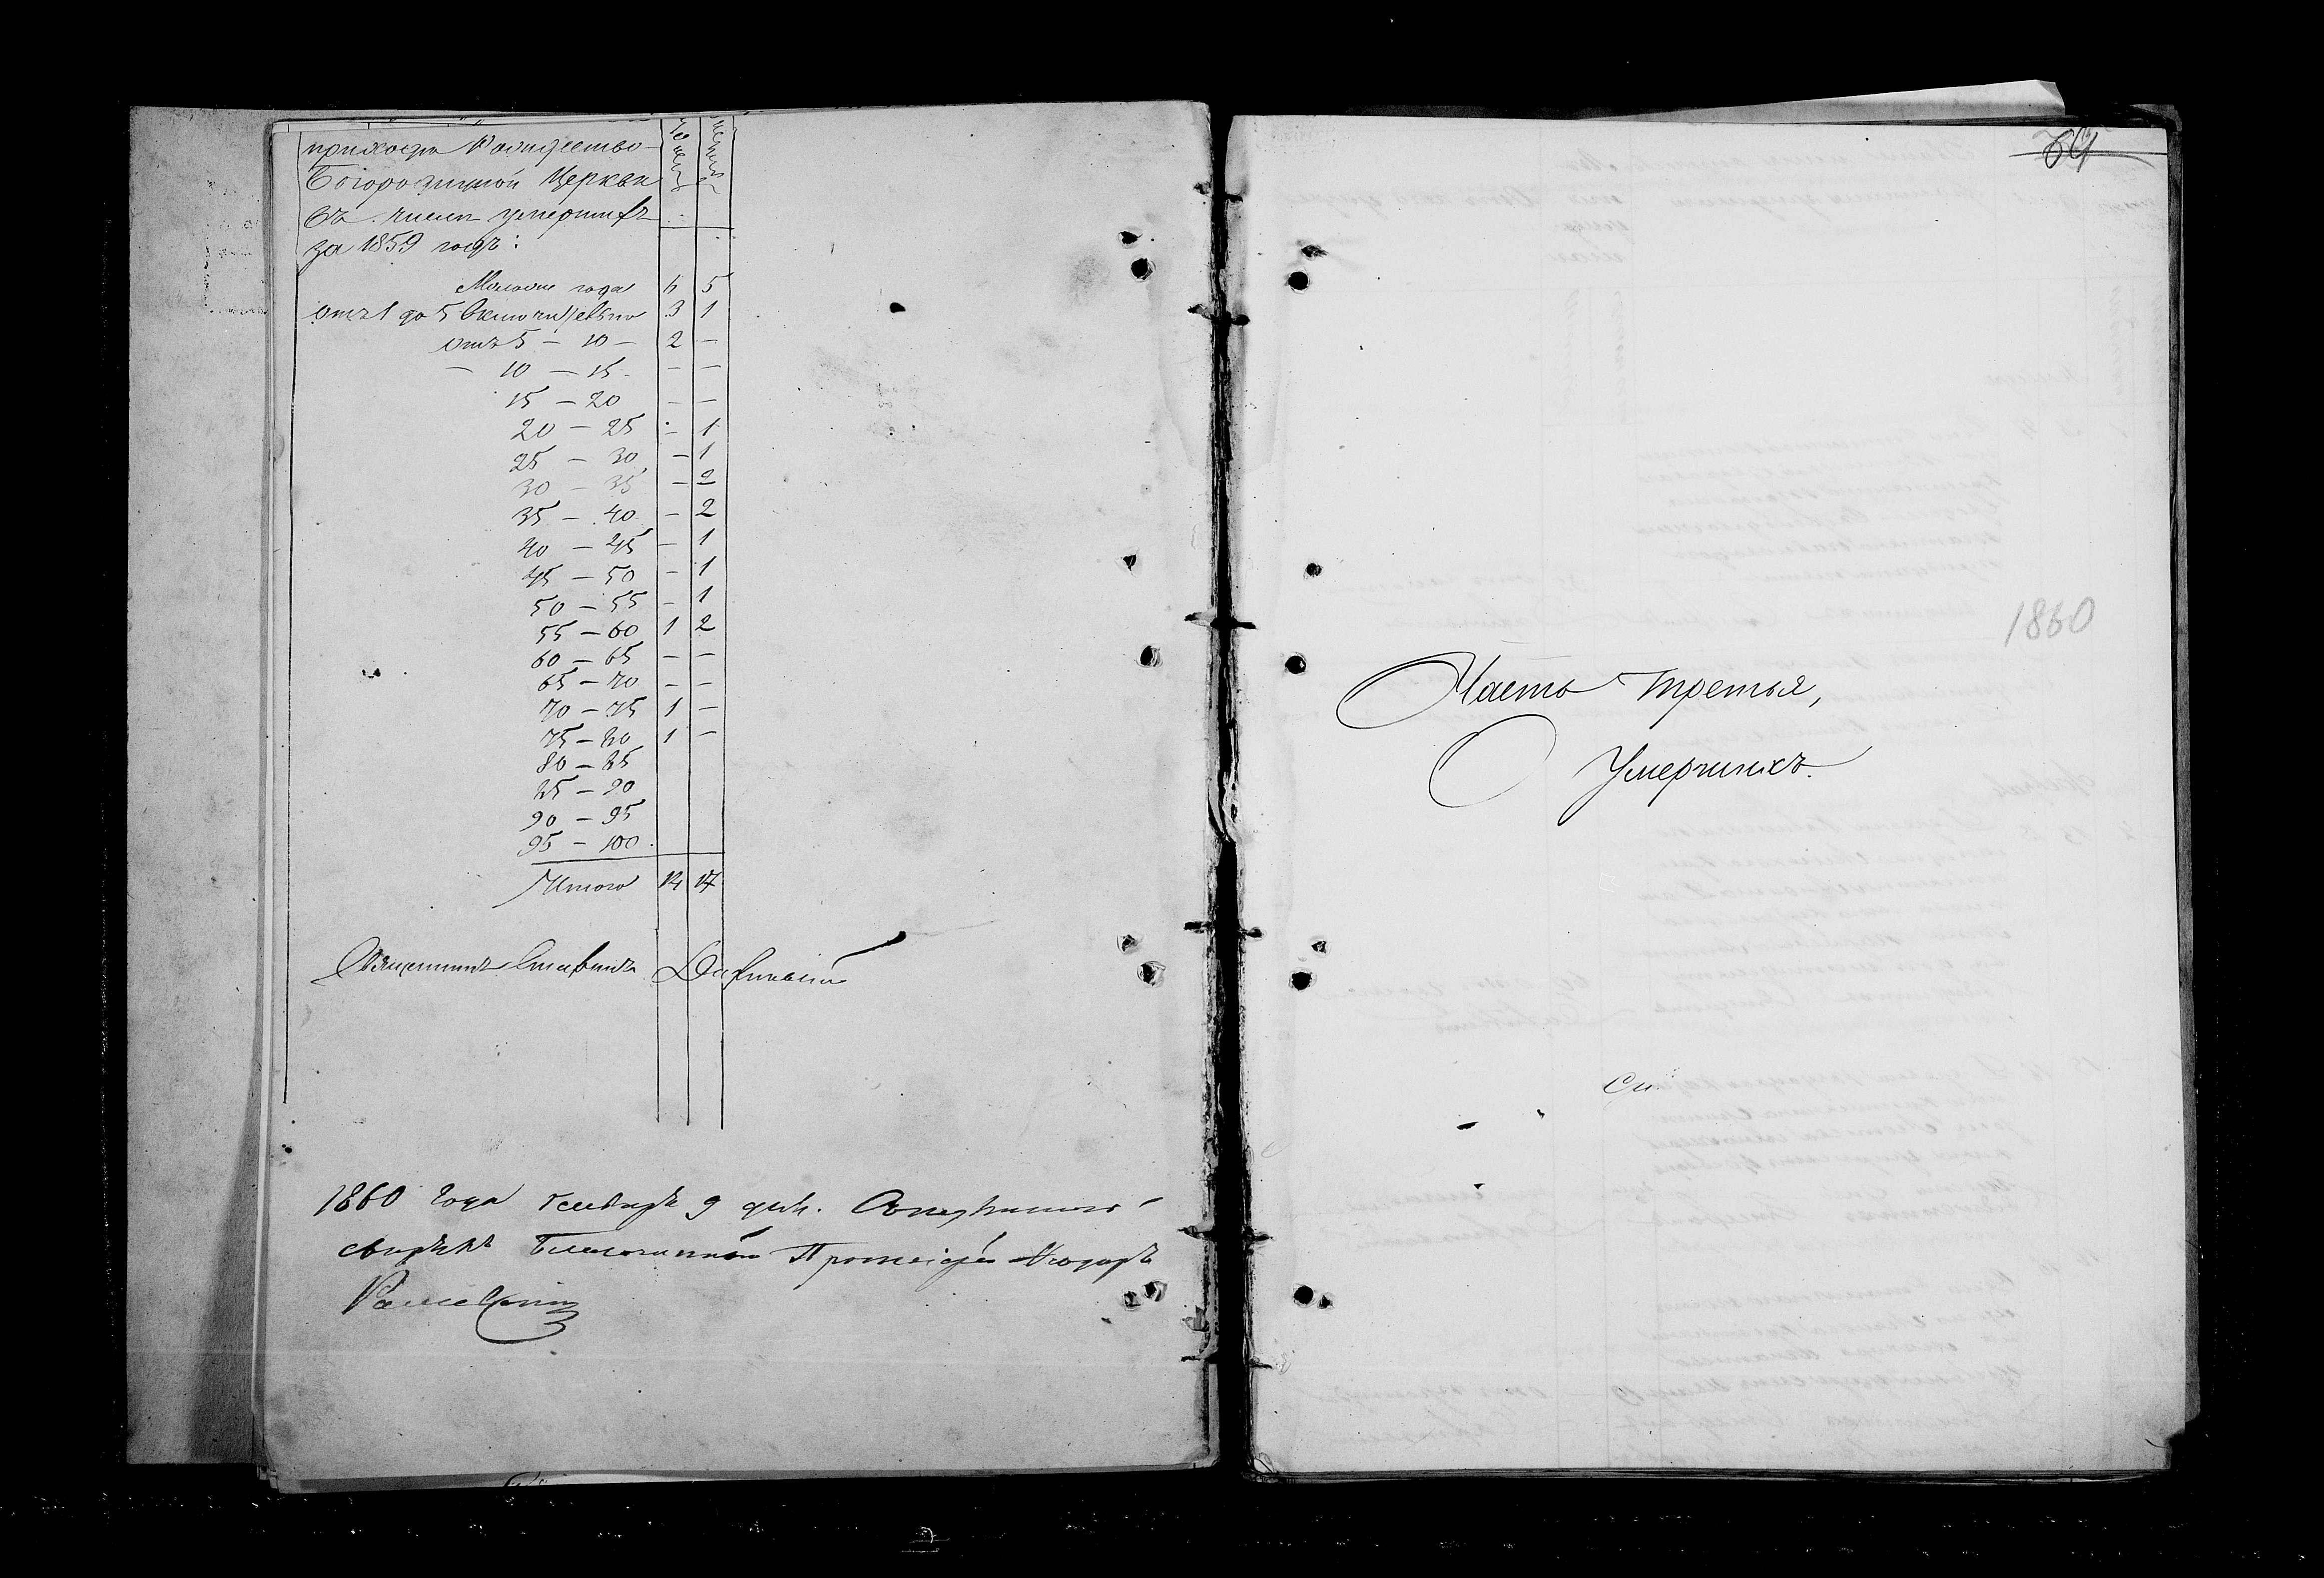 прихода Рождество-
Богородичной Церкви
въ числѣ умершихъ
за 1859 годъ:
Моложе года 6 5
отъ 1 до 5 включительно 3 1
отъ 5 — 10 — 2 —
— 10 — 15 — —
15 — 20 — —
20 — 25 — 1
25 — 30 — 1
30 — 35 — 2
35 — 40 — 2
40 — 45 — 1
45 — 50 — 1
50 — 55 — 1
55 — 60 1 2
60 — 65 — —
65 — 70 — —
70 — 75 1 —
75 — 80 1 —
80 — 85
85 — 90
90 — 95
95 — 100
Итого 14 17
Священникъ
1860 года Генваря 9 дня.
Благочинный Протоіерей
69
1860
Часть третья,
Умершихъ.